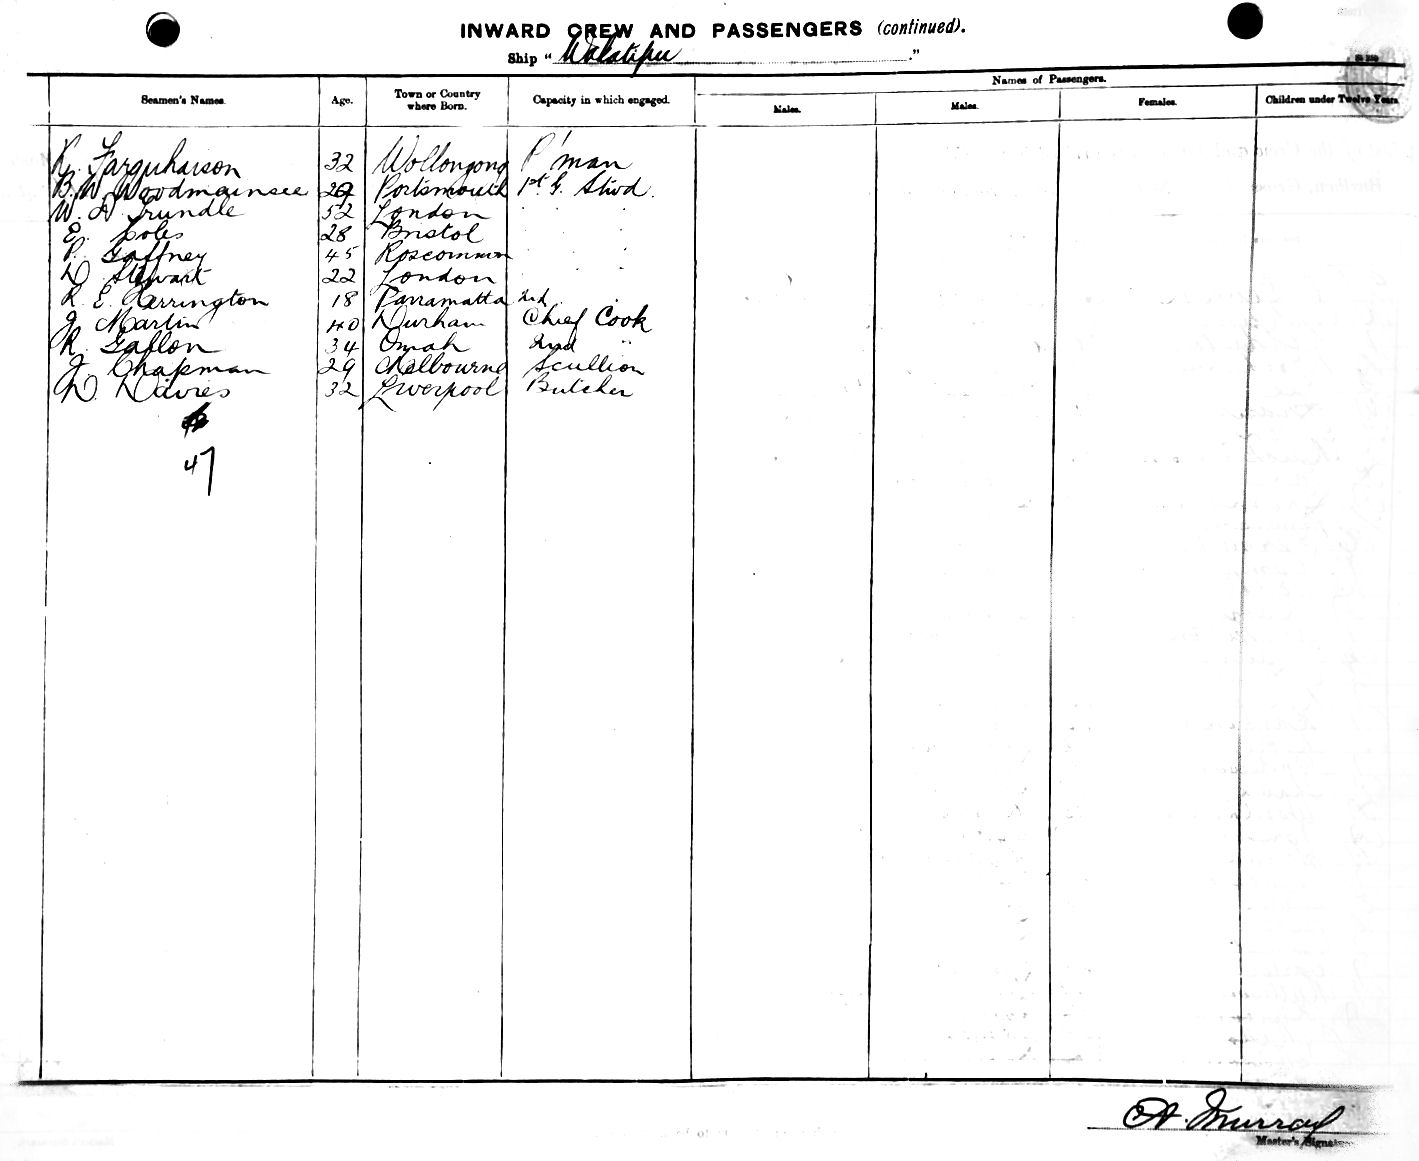 INWARD CREW AND PASSENGERS (continued).
Ship "Wakatipu"
Names of Passengers.
Seamen's Names. Age. Town or Country where Born. Capacity in which engaged. Males. Males. Females. Children under Twelve Years
R. Farquharson 32 Wollongong P'man
B. W. Woodmansee 29 Portsmouth 1st G. Stwd.
W. A. Trundle 52 London " " "
E. Coles 28 Bristol
P. Gaffney 45 Roscommon
D. Stewart 22 London
R. E. Herrington 18 Parramatta 2nd
J. Martin 40 Durham Chief Cook
R. Gallon 34 Omah 2nd "
J. Chapman 29 Melbourne Scullion
D. Davies 32 Liverpool Butcher
47
A. Murray
Master's Signature